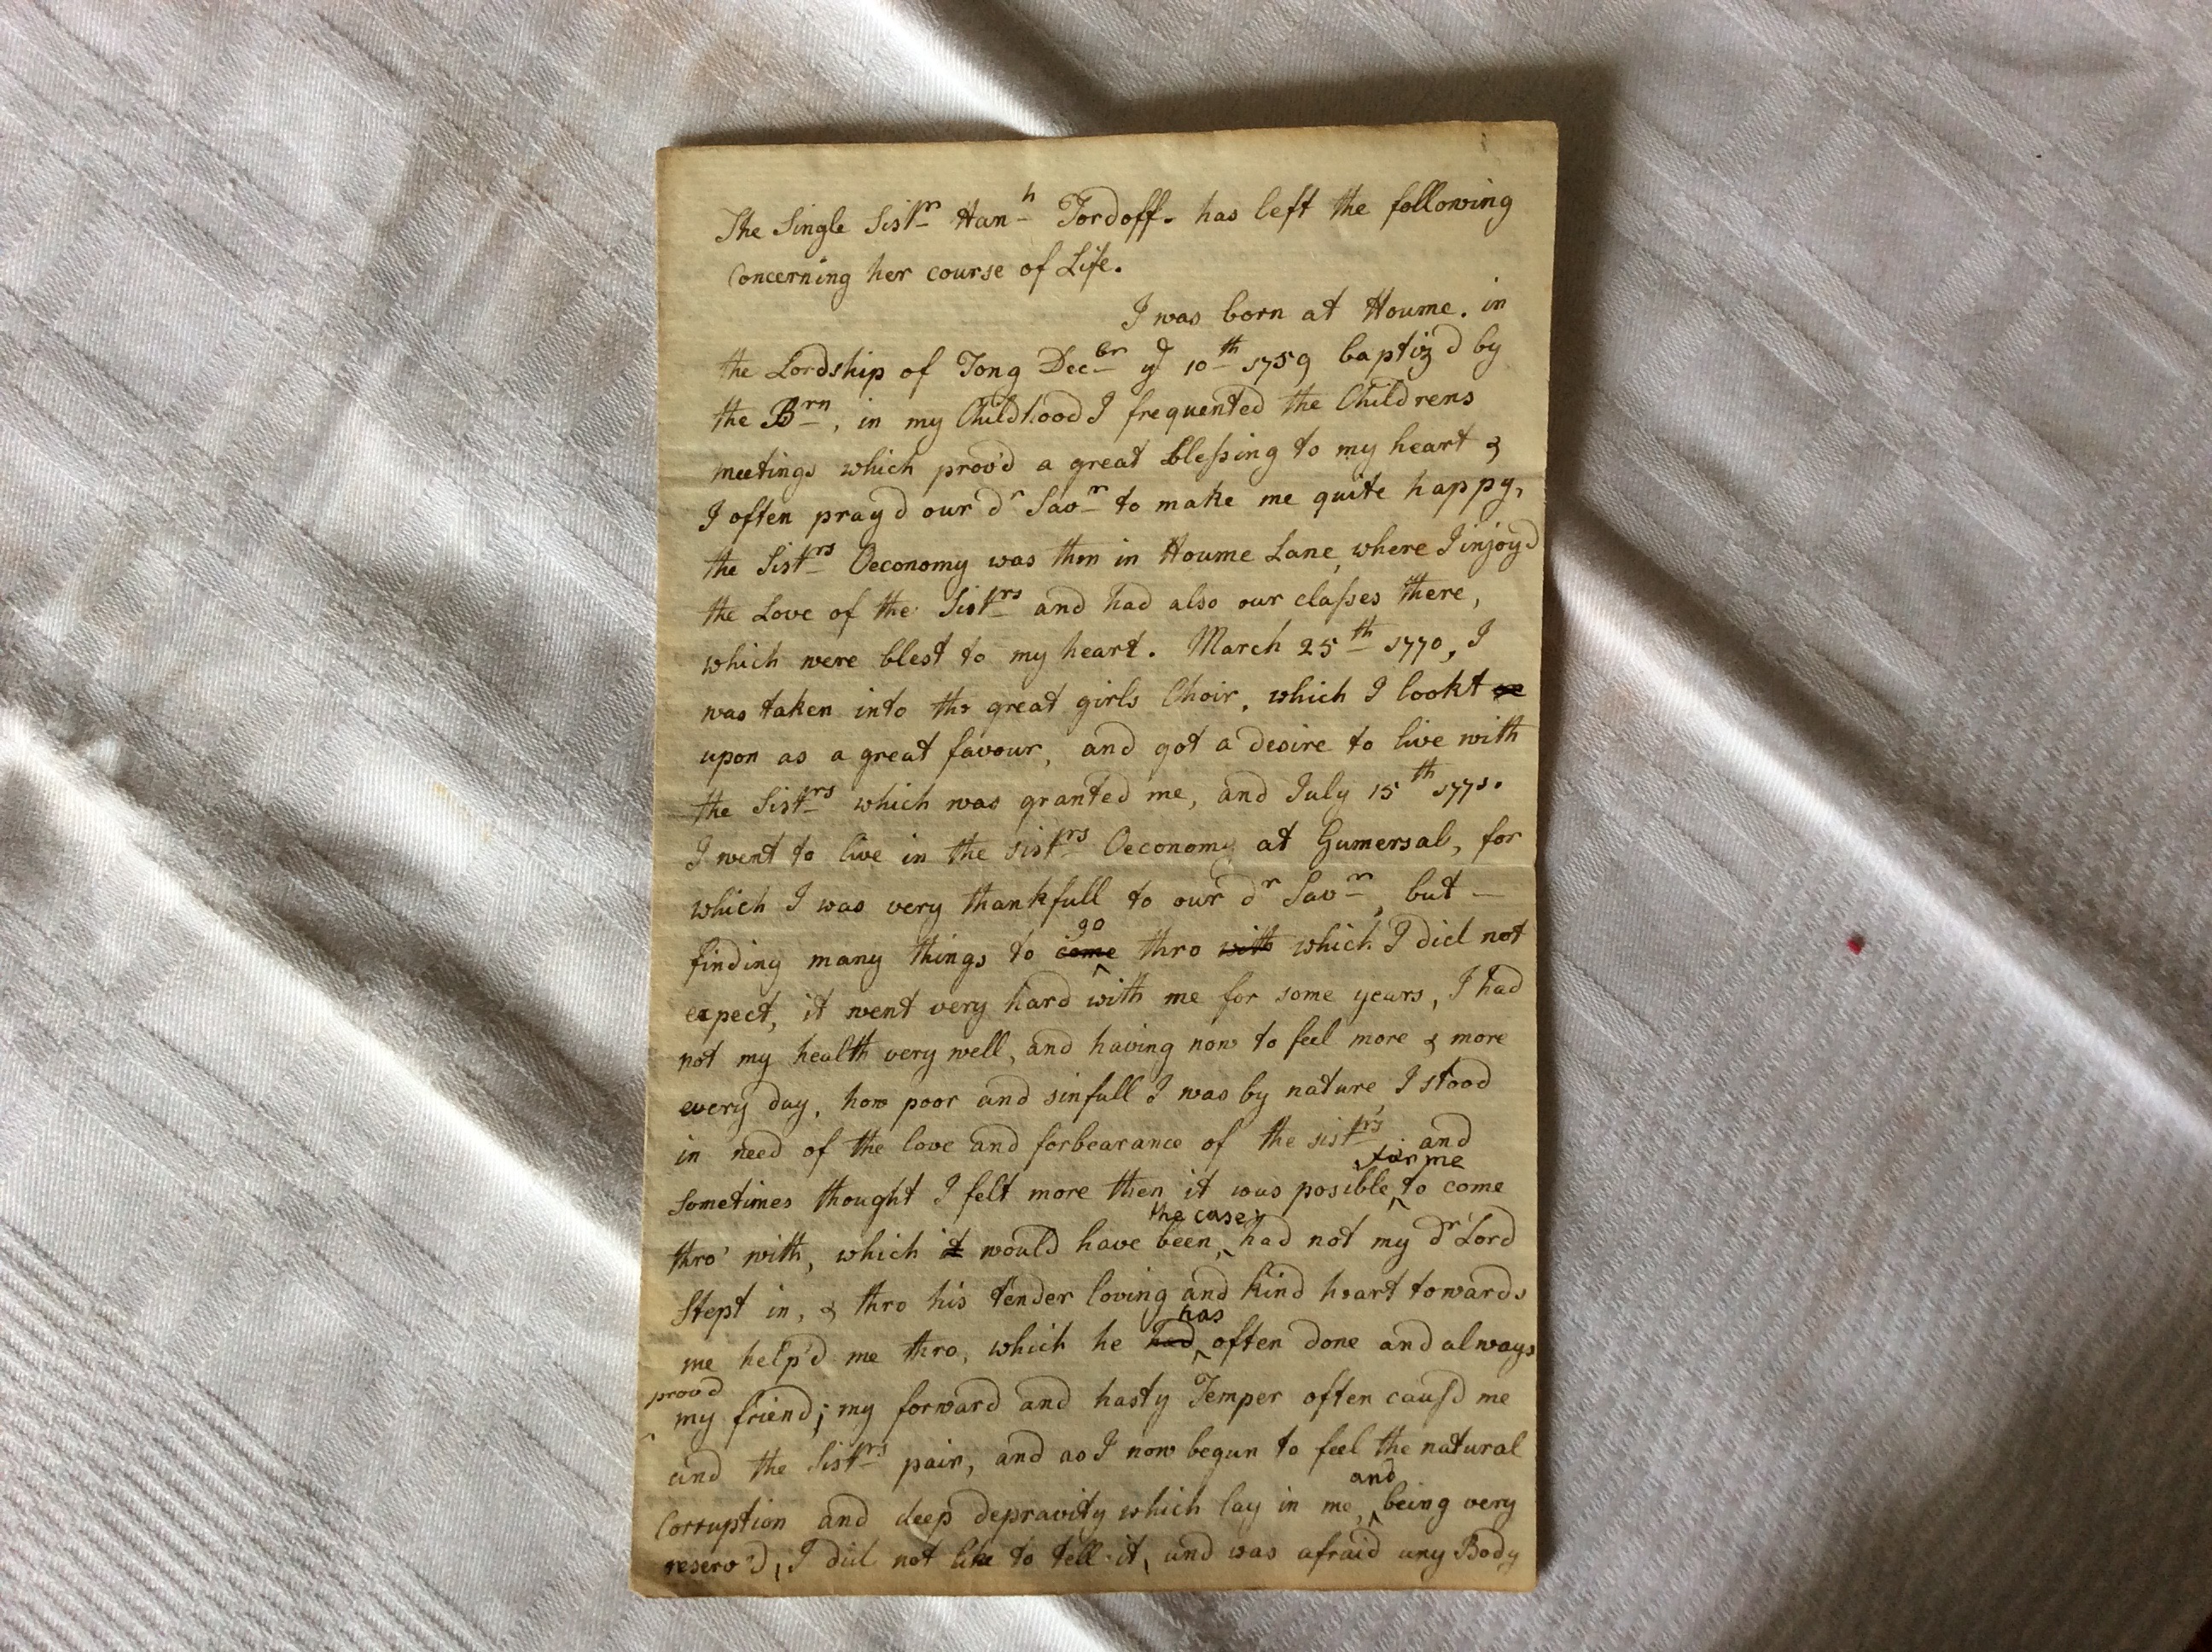 The Single Sistr Hanh Tordoff. has left the following
Concerning her course of Life.
I was born at Houme. in
the Lordship of Tong Decbr ye 10th 1759 baptiz'd by
the Brn, in my Childhood I frequented the Childrens
meetings which prov'd a great blessing to my heart &
I often pray'd our dr Savr to make me quite happy,
the Sistrs Oeconomy was then in Houme Lane, where I injoy'd
the Love of the Sistrs and had also our classes there,
which were blest to my heart. March 25th 1770, I
was taken into the great girls Choir, which I lookt on
upon as a great favour, and got a desire to live with
the Sistrs which was granted me, and July 15th 1771.
I went to live in the sistrs Oeconomy at Gumersal, for
which I was very thankfull to our dr Savr, but —
go
finding many things to come ^ thro with which I did not
expect, it went very hard with me for some years, I had
not my health very well, and having now to feel more & more
every day, how poor and sinfull I was by nature, I stood
in need of the love and forbearance of the sistrs, and
for me
sometimes thought I felt more then it was posible ^ to come
the case,
thro' with, which it would have been, ^ had not my dr Lord
Stept in, & thro his tender loving and kind heart towards
has
me help'd me thro, which he had ^ often done and always
prov'd
^ my friend; my forward and hasty Temper often caus'd me
and the Sistrs pain, and as I now begun to feel the natural
and
Corruption and deep depravity which lay in me, ^ being very
reserv'd, I did not like to tell it, and was afraid any Body